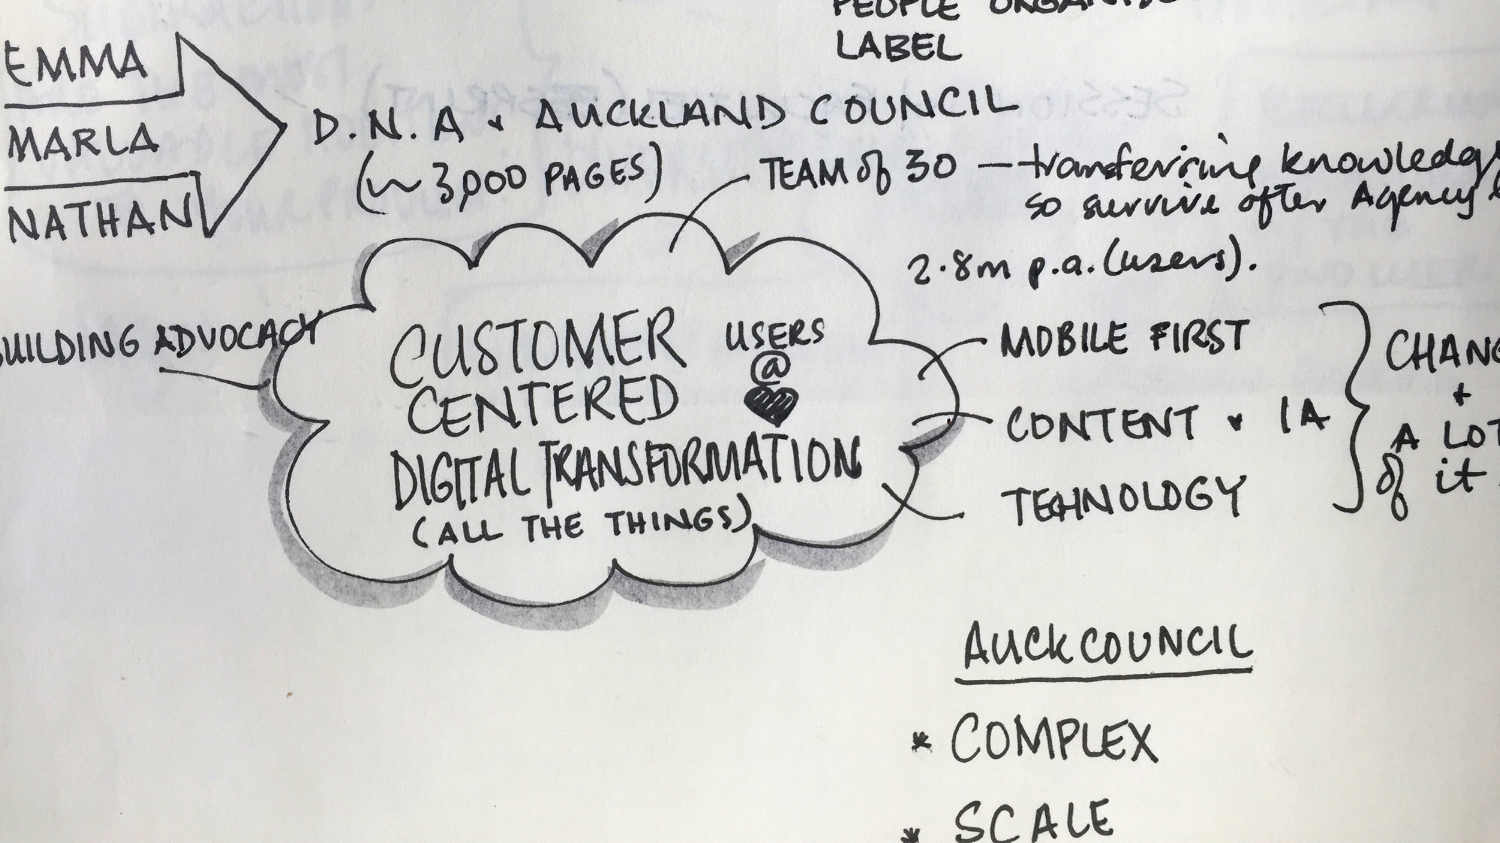 LABEL
EMMA
MARLA
NATHAN
D.N.A + AUCKLAND COUNCIL
(~ 3,000 PAGES)
TEAM of 30 — transferring knowledge
so survive after Agency
2.8m p.a. (users).
BUILDING ADVOCACY
CUSTOMER
CENTERED
USERS
@
♥
DIGITAL TRANSFORMATION
(ALL THE THINGS)
MOBILE FIRST
CONTENT + IA
TECHNOLOGY
+
A LOT
of it
AUCKCOUNCIL
* COMPLEX
* SCALE